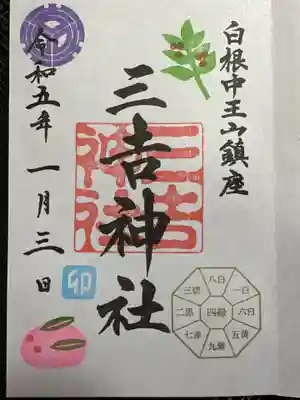 白根中王山鎮座
三𠮷神社
三吉
神社
令和五年 一月三日
卯
八白
三碧 一白
二黒 四緑 六白
七赤 五黄
九紫